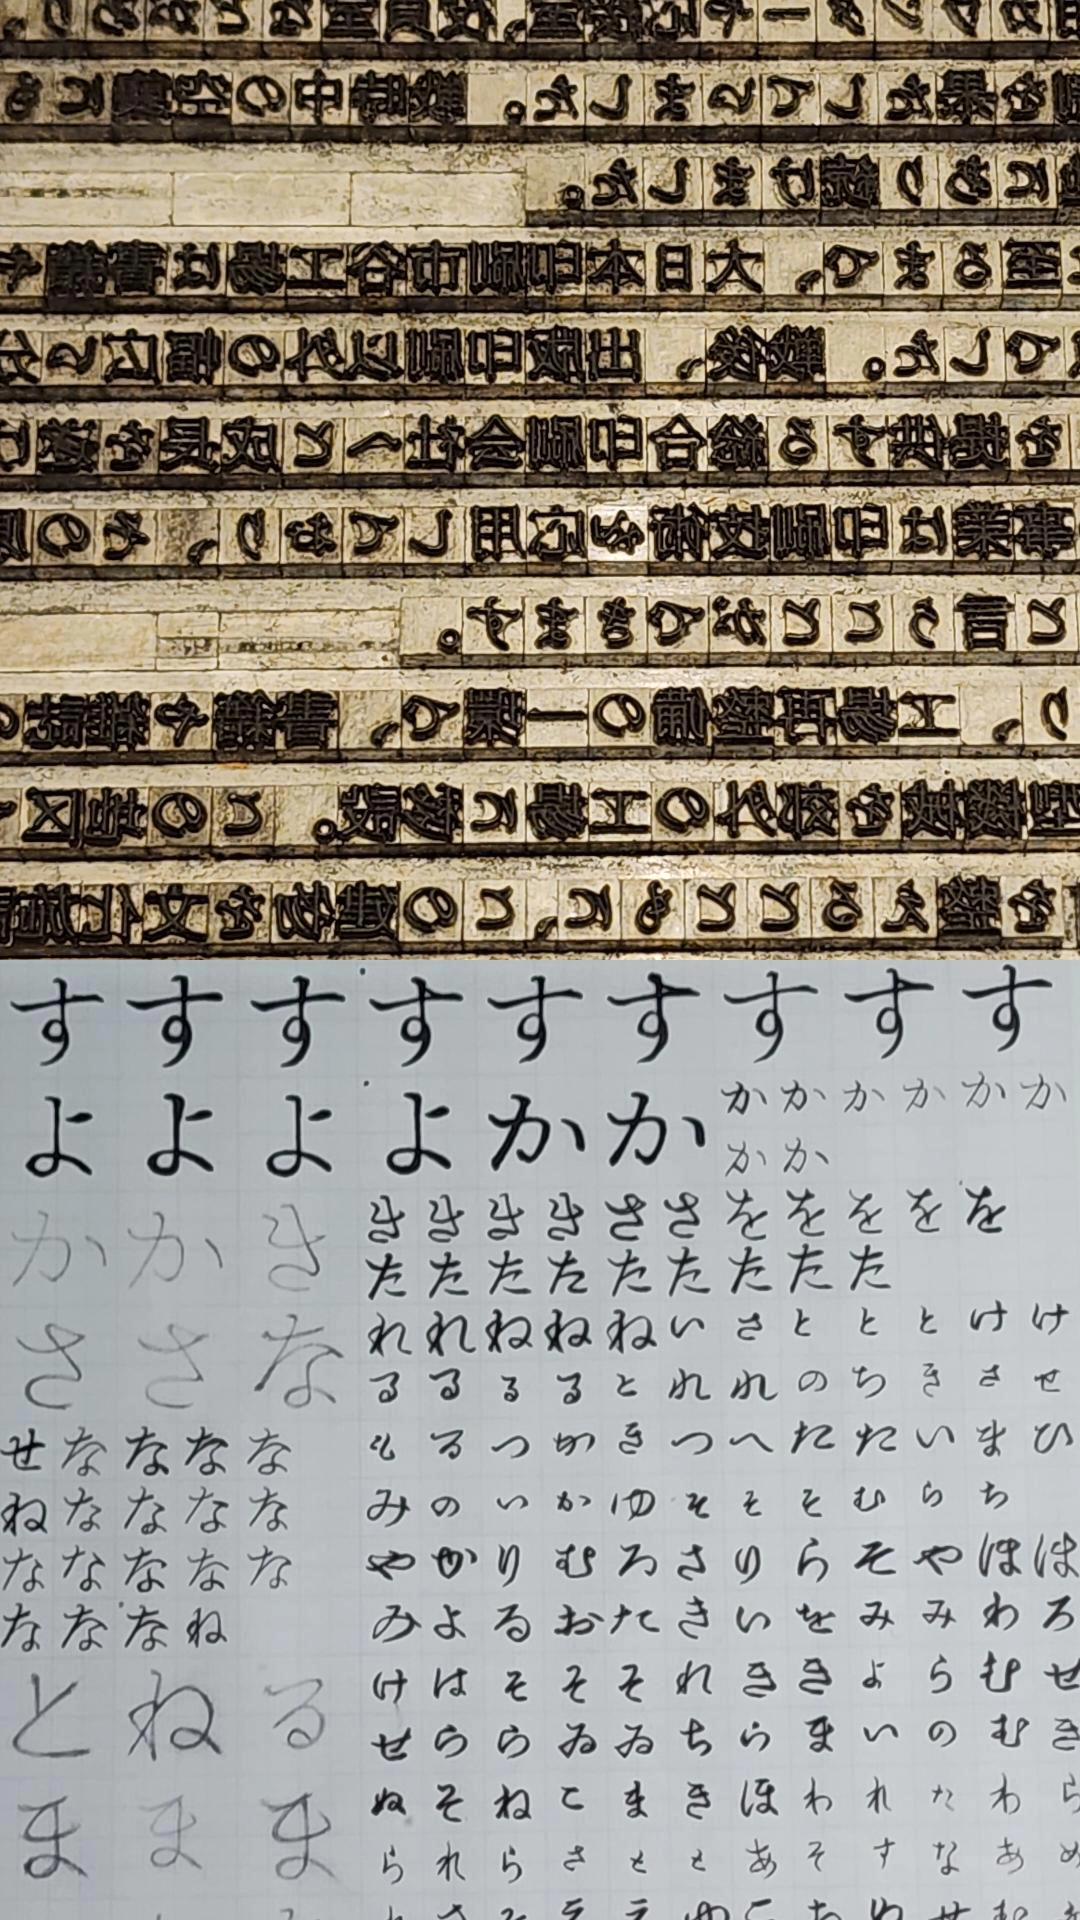 ンターや応接室、役員室など
割を果たしていました。戦時中の空襲でも
にあり続けました。
に至るまで、大日本印刷市谷工場は書籍や
でした。戦後、出版印刷以外の幅広い分
を提供する総合印刷会社へと成長を遂げ
事業は印刷技術を応用しており、その原
と言うことができます。
り、工場再整備の一環で、書籍や雑誌の
型機械を郊外の工場に移設。この地区
を整えるとともに、この建物を文化施設
すすすすすすすすす
よよよよかかかかかかかか
かか
かかき
きききささををををを
たたたたたたたたた
ささな
れれねねねいさとととけけ
るるるるとれれのちきさせ
せなななな
るつかきつへたたいまひ
ねなななな
みのいかゆそそそむらち
ななななな
やかりむろさりらそやはは
なななね
みよるおたきいをみみわろ
とねる
けはそそそれききよらむせ
せららゐゐちらまいのむき
ままま
ぬそねこまきほわれたわら
られらさととあそすなあぬ